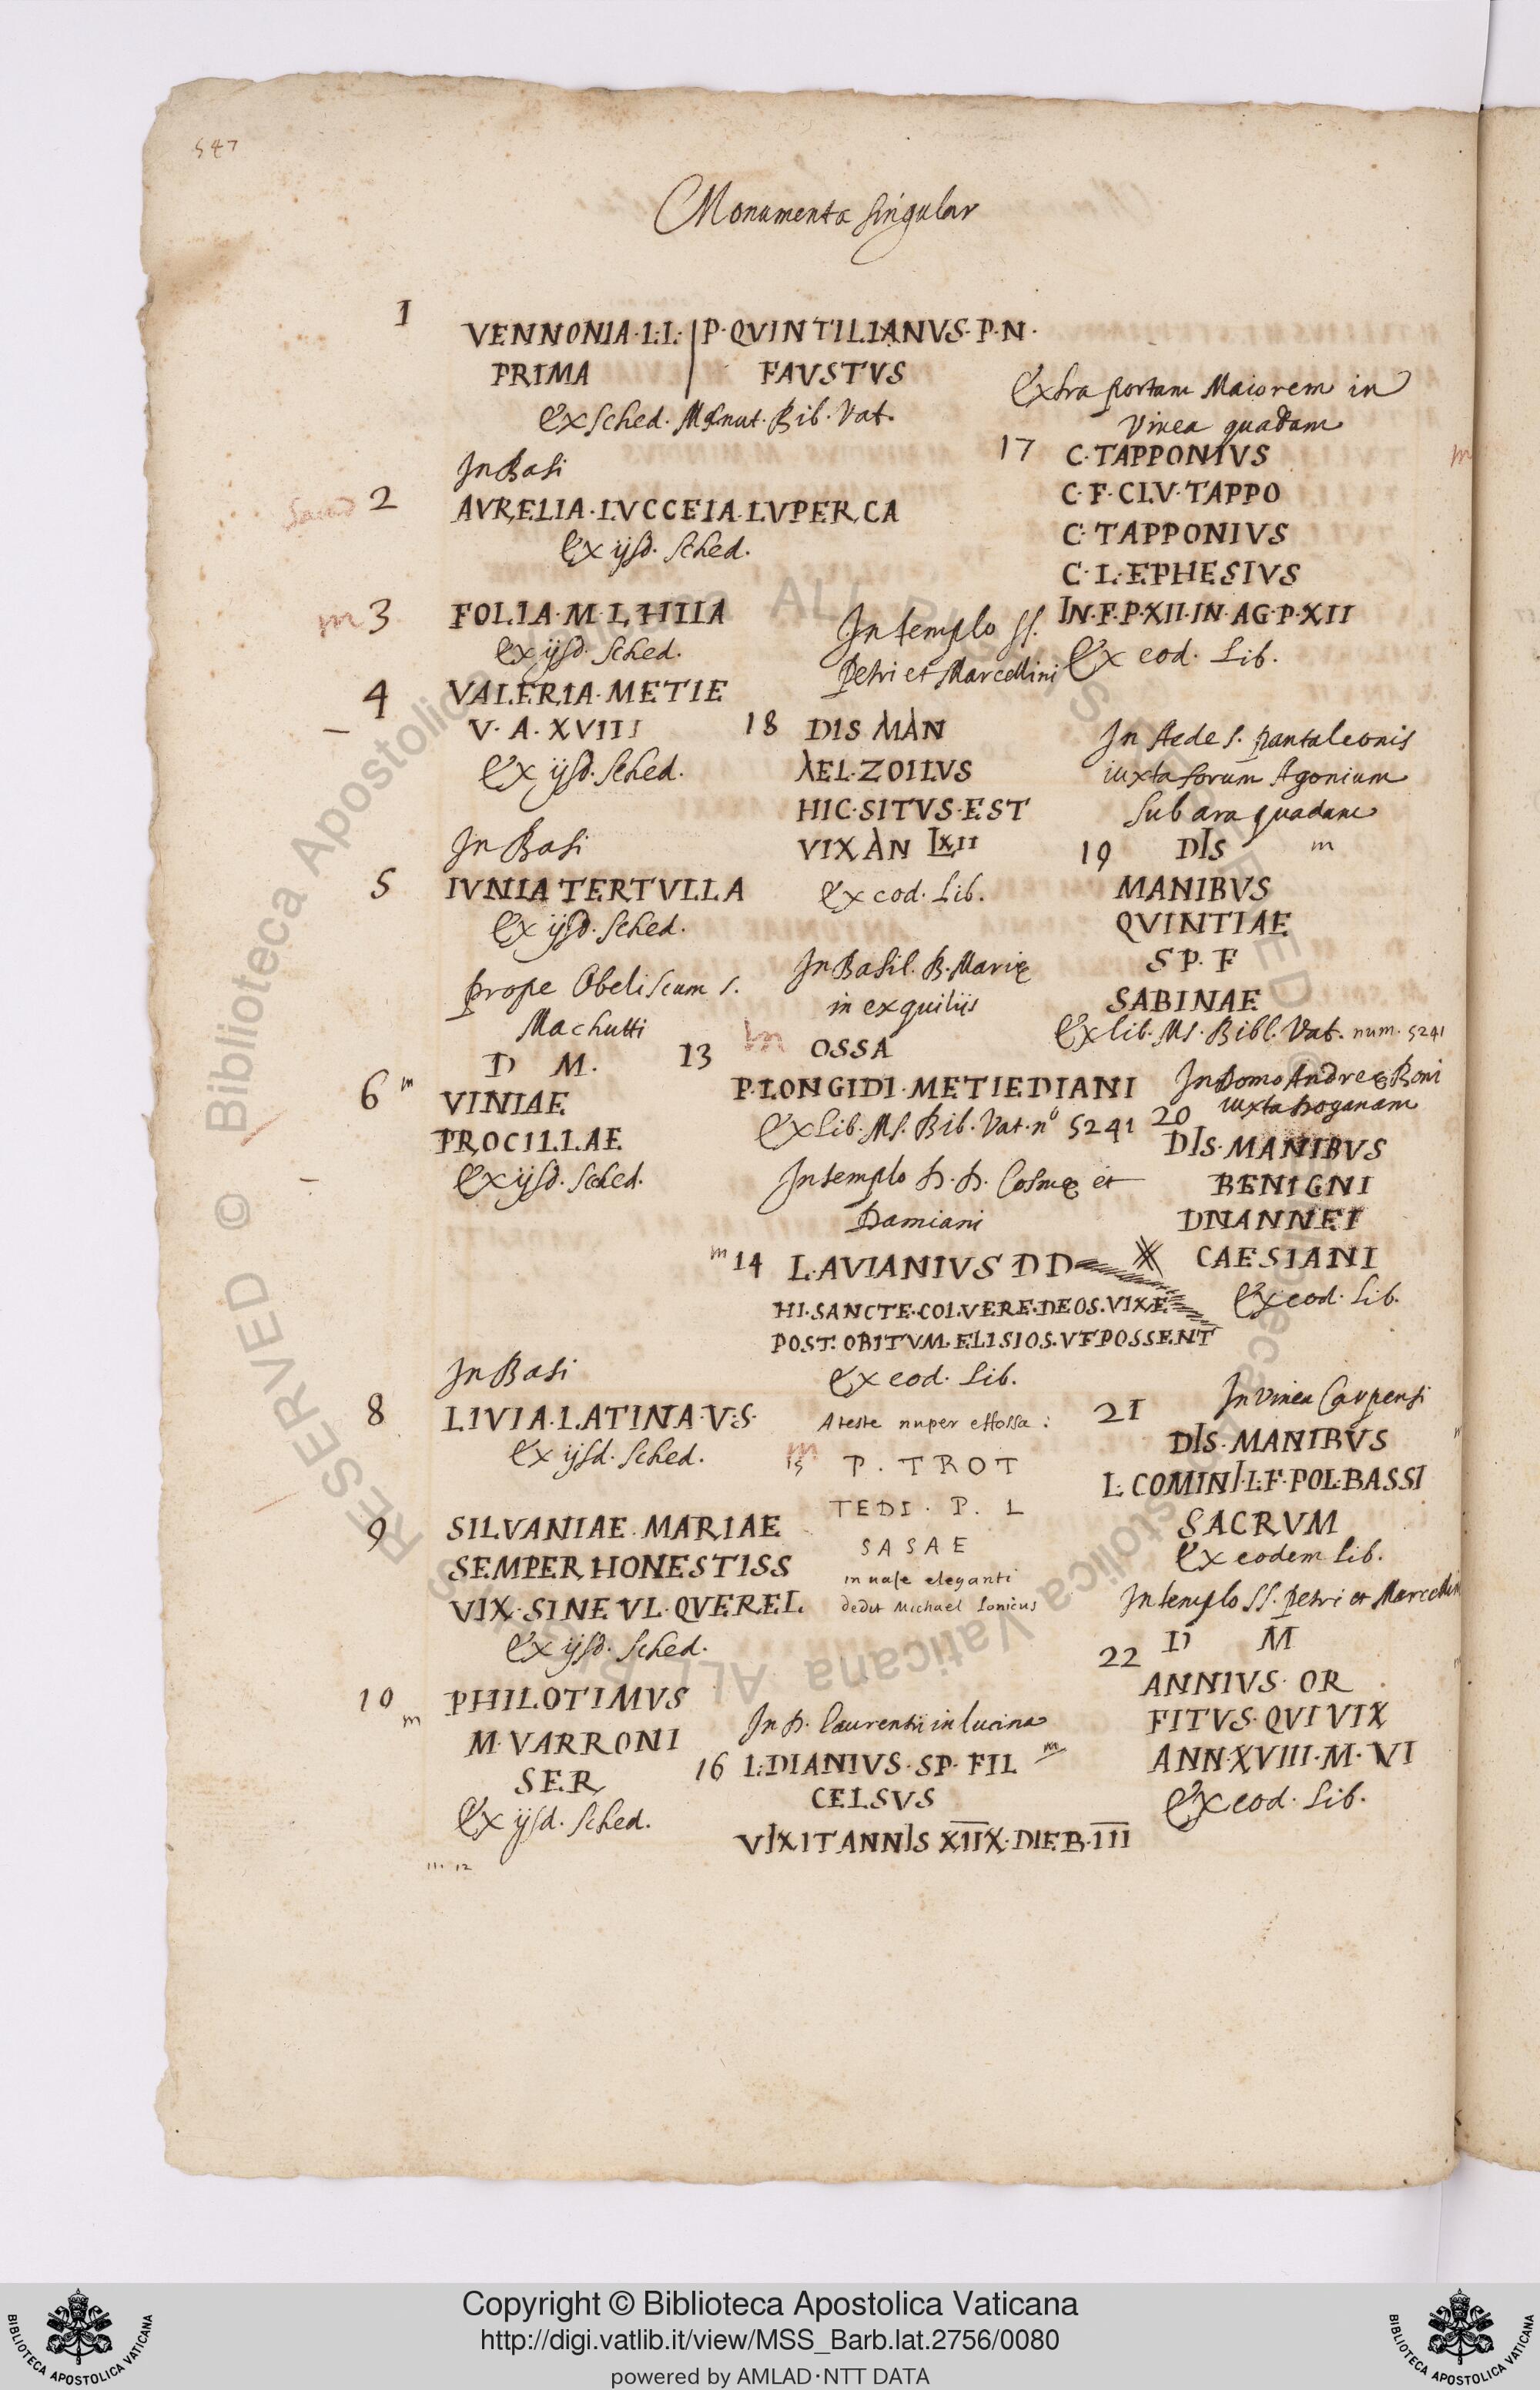 547
Monumenta singular
1
VENNONIA·L·L· | P·QVINTILIANVS·P·N·
PRIMA | FAVSTVS
Ex sched. Manut. Bib. Vat.
In Basi
2 AVRELIA·LVCCEIA·LVPERCA
Ex ijsd. sched.
m 3 FOLIA·M·L·HIIIA
Ex ijsd. sched.
4 VALERIA·METIE
V·A·XVIII
Ex ijsd. sched.
In Basi
5 IVNIA TERTVLLA
Ex ijsd. sched.
prope Obeliscum S.
Machutti
D M.
6 m VINIAE
PROCILLAE
Ex ijsd. sched.
In Basi
8 LIVIA·LATINA·V·S·
Ex ijsd. sched.
9 SILVANIAE·MARIAE
SEMPER HONESTISS
VIX·SINE VL·QVEREL
Ex ijsd. sched.
10 m PHILOTIMVS
M·VARRONI
SER
Ex ijsd. sched.
11. 12
In templo SS.
Petri et Marcellini
18 DIS MAN
AEL·ZOILVS
HIC·SITVS·EST
VIX AN LXII
Ex cod. Lib.
In Basil. B. Marię
in exquiliis
13 m OSSA
P·LONGIDI·METIEDIANI
Ex Lib. Ms. Bib. Vat. nº 5241
In templo D. D. Cosmę et
Damiani
m 14 L·AVIANIVS D D
HI·SANCTE·COLVERE·DEOS·VIXE
POST·OBITVM·ELISIOS·VT POSSENT
Ex eod. Lib.
Ateste nuper effossa:
m 15 P. TROT
TEDI. P. L
SASAE
in uase eleganti
dedit Michael Lonicus
In D. Laurentii in lucina
16 L·DIANIVS·SP·FIL m
CELSVS
VIXIT ANNIS XIIX·DIEB·III
Extra portam Maiorem in
Vinea quadam
17 C·TAPPONIVS m
C·F·CLV·TAPPO
C·TAPPONIVS
C·L·EPHESIVS
IN·F·P·XII·IN·AG·P·XII
Ex eod. Lib.
In Aede S. Pantaleonis
iuxta forum Agonium
sub ara quadam
19 DIS m
MANIBVS
QVINTIAE
SP. F
SABINAE
Ex lib. Ms. Bibl. Vat. num. 5241
In Domo Andreę Boni
iuxta Doganam
20 DIS·MANIBVS
BENIGNI
DNANNEI
CAESIANI
Ex eod. Lib.
In vinea Carpensi
21 DIS·MANIBVS
L·COMINI·L·F·POL·BASSI
SACRVM
Ex eodem Lib.
In templo SS. Petri et Marcellin
22 D M
ANNIVS·OR
FITVS·QVI VIX
ANN·XVIII·M·VI
Ex eod. Lib.
Copyright © Biblioteca Apostolica Vaticana
http://digi.vatlib.it/view/MSS_Barb.lat.2756/0080
powered by AMLAD·NTT DATA
BIBLIOTECA APOSTOLICA VATICANA
BIBLIOTECA APOSTOLICA VATICANA